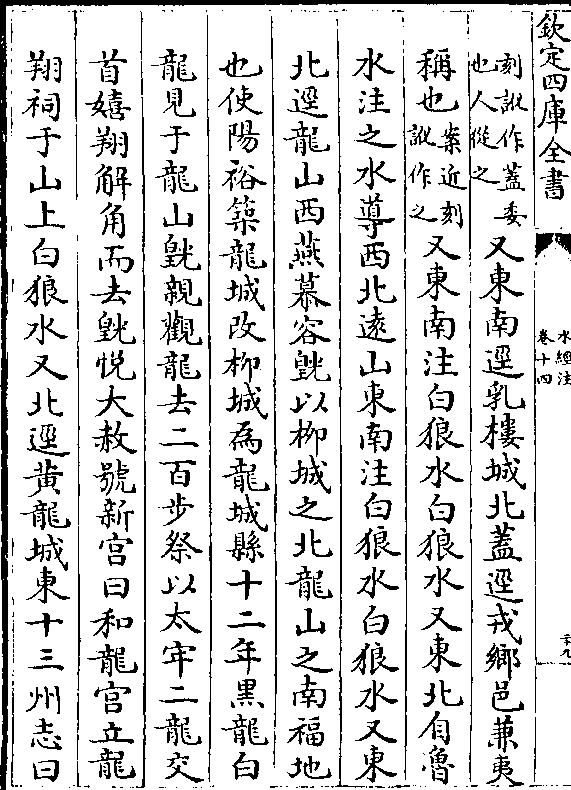 欽定四庫全書
水經注
卷十四
二十九
刻訛作蓋委
也人從之
又東南逕乳樓城北蓋逕戎鄉邑兼夷
稱也案近刻
訛作之
又東南注白狼水白狼水又東北自魯
水注之水導西北遠山東南注白狼水白狼水又東
北逕龍山西燕慕容皝以柳城之北龍山之南福地
也使陽裕築龍城改柳城為龍城縣十二年黑龍白
龍見于龍山皝親觀龍去二百步祭以太牢二龍交
首嬉翔解角而去皝悅大赦號新宮曰和龍宮立龍
翔祠于山上白狼水又北逕黃龍城東十三州志曰